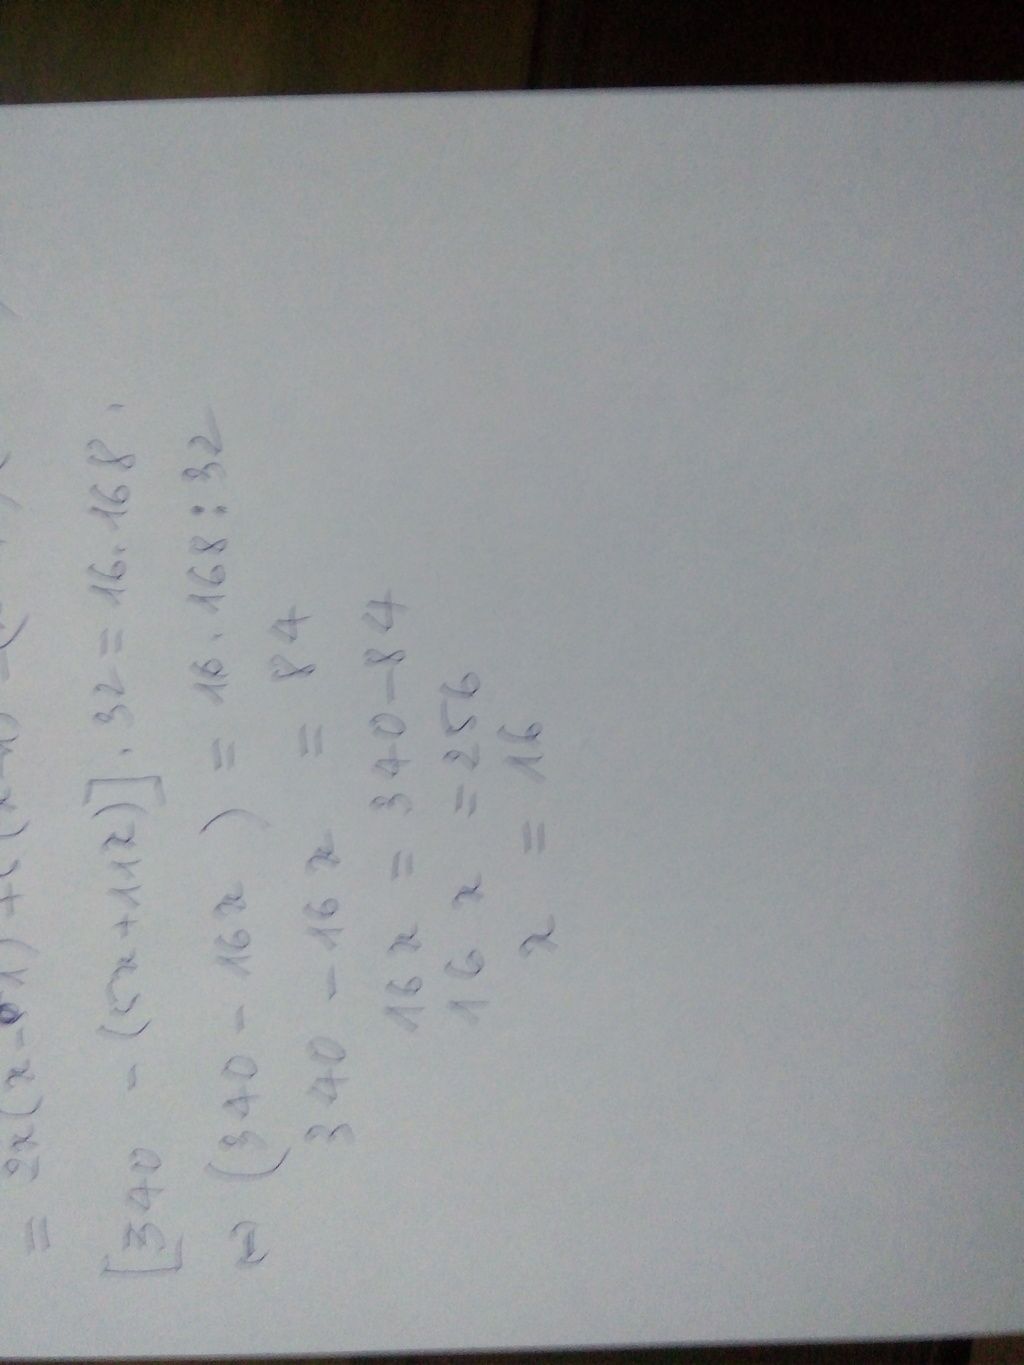 = 2x(x-1)+
[340 - (5x+11x)].32 = 16.168.
⇔ (340 - 16x) = 16.168:32
340 - 16x = 84
16x = 340-84
16x = 256
x = 16